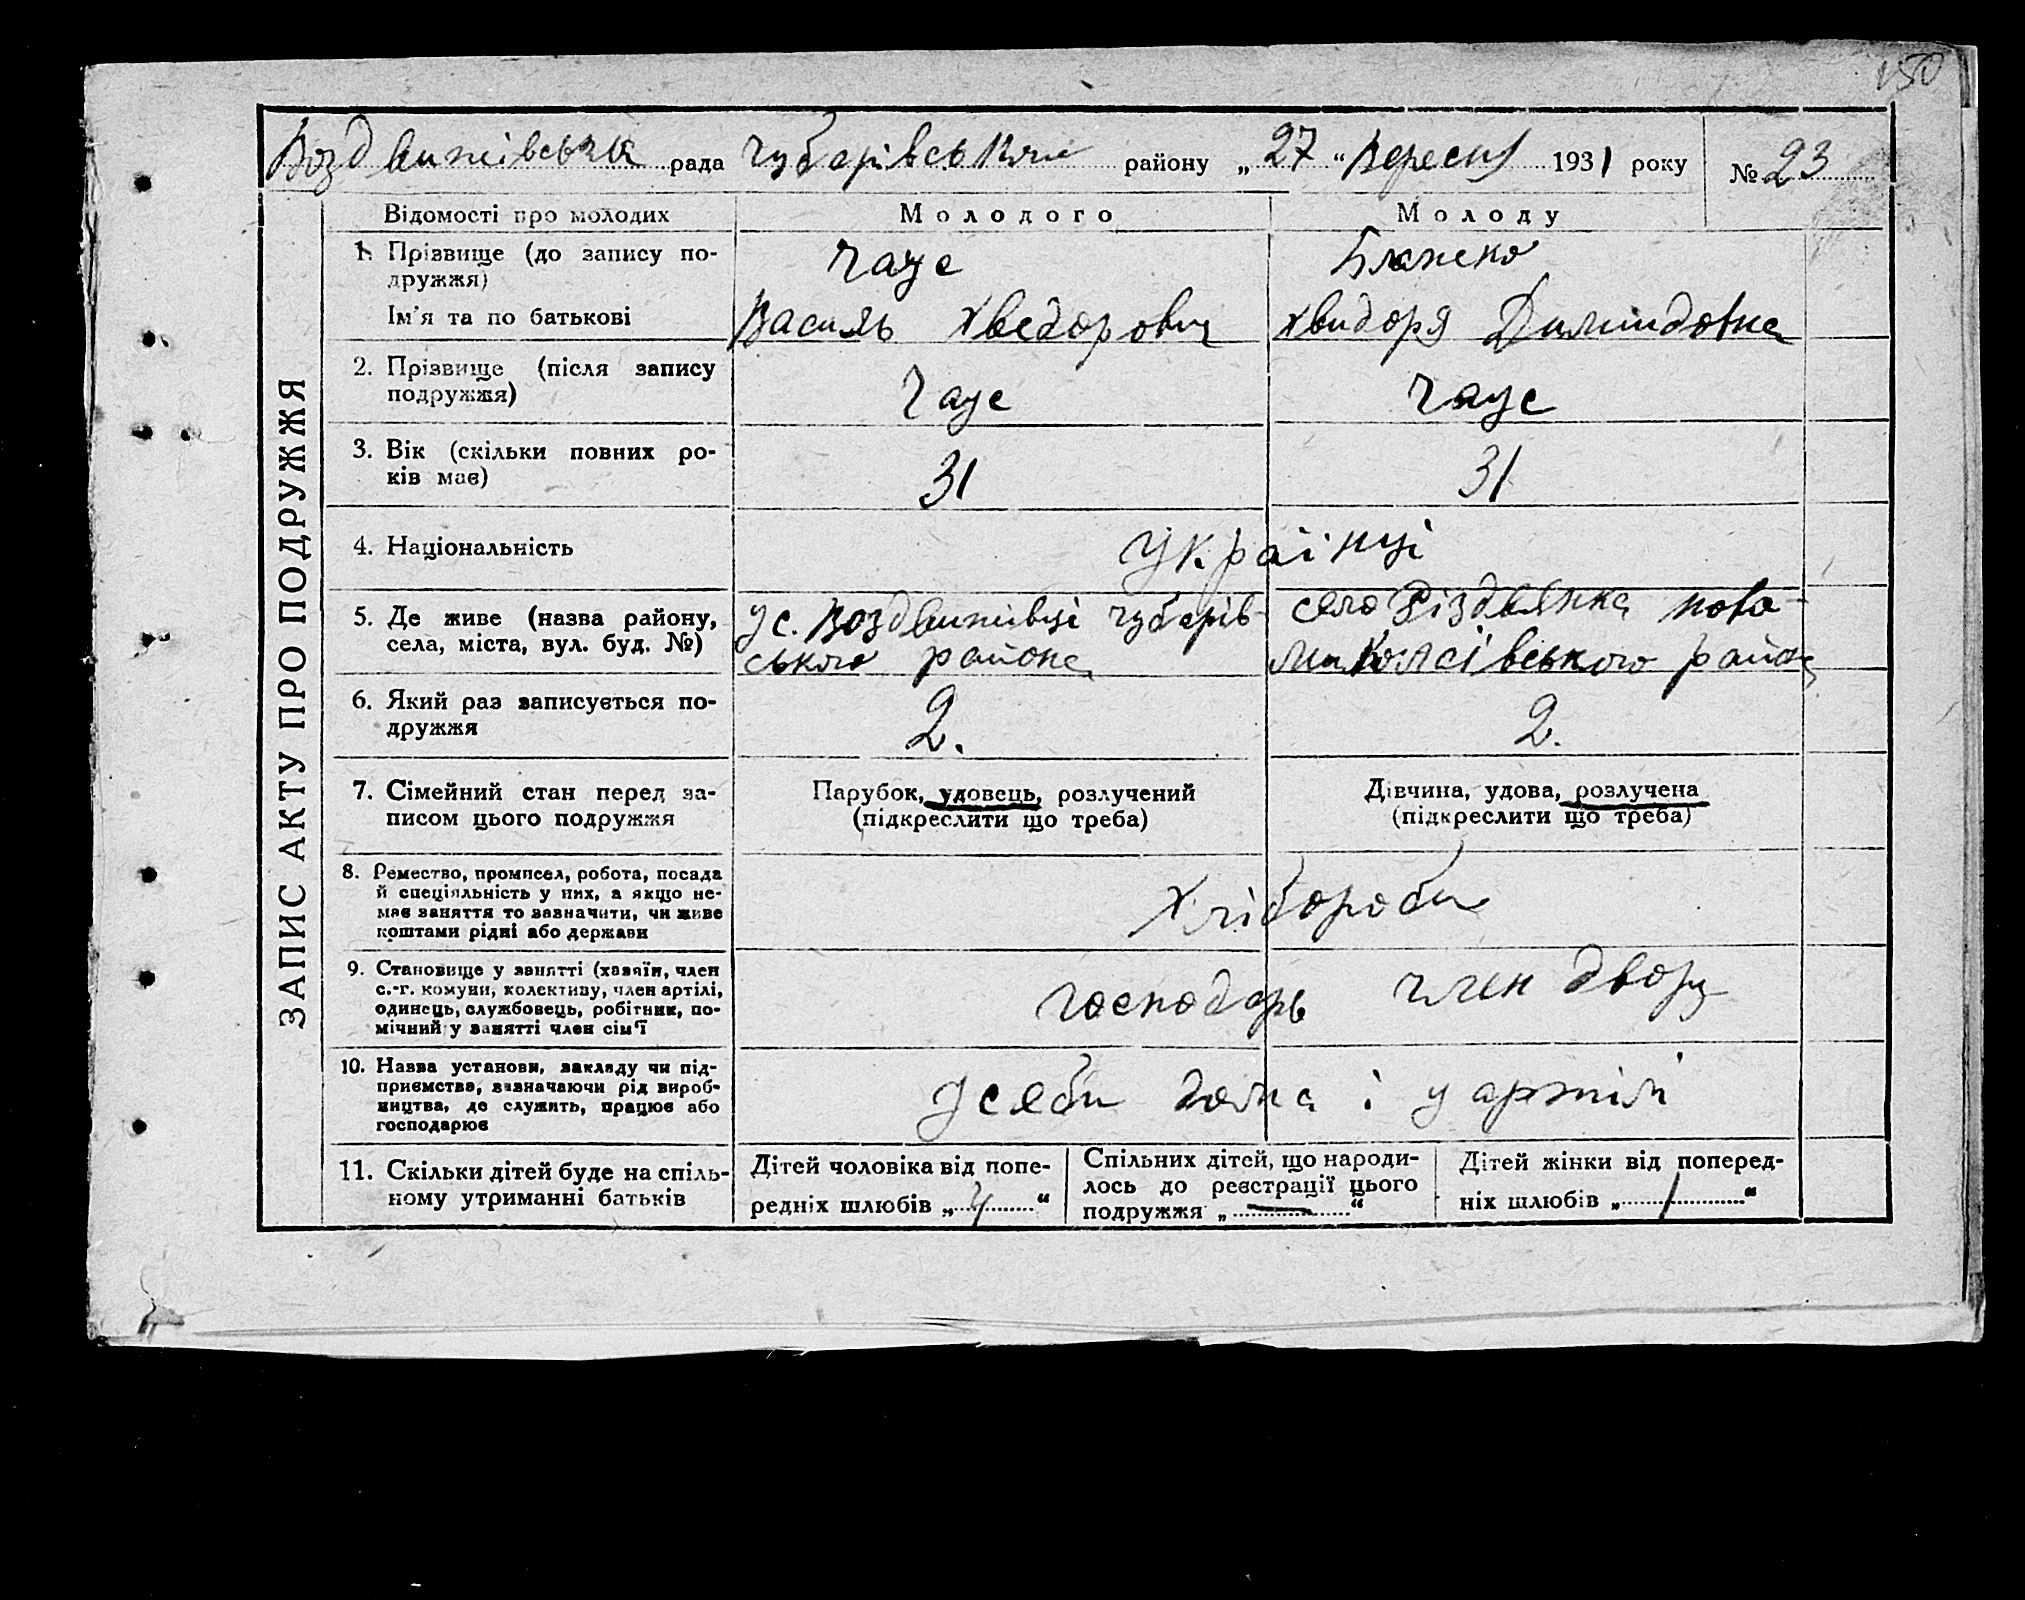 150
Воздвижівська рада Чубарівського району „27“ Вересня 1931 року № 23
ЗАПИС АКТУ ПРО ПОДРУЖЖЯ
Відомості про молодих Молодого Молоду
1. Прізвище (до запису по-
дружжя)
Чаус Бланско
Ім'я та по батькові
Василь Хведорович Хвидоря
2. Прізвище (після запису
подружжя)
Чаус Чаус
3. Вік (скільки повних ро-
ків має)
31 31
4. Національність
Українці
5. Де живе (назва району,
села, міста, вул. буд. №)
у с. Воздвижівці Чубарів-
ського района
село Різдвянка ново-
миколаівського района
6. Який раз записується по-
дружжя
2. 2.
7. Сімейний стан перед за-
писом цього подружжя
Парубок, удовець, розлучений
(підкреслити що треба)
Дівчина, удова, розлучена
(підкреслити що треба)
8. Ремество, промисел, робота, посада
й спеціяльність у них, а якщо не-
має заняття то зазначити, чи живе
коштами рідні або держави
Хлібороби
9. Становище у занятті (хазяїн, член
с.-г. комуни, колективу, член артілі,
одинець, службовець, робітник, по-
мічний у занятті член сім'ї
господарь член двору
10. Назва установи, закладу чи під-
приємства, зазначаючи рід вироб-
ництва, де служить, працює або
господарює
у себи дома і у артілі
11. Скільки дітей буде на спіль-
ному утриманні батьків
Дітей чоловіка від попе-
редніх шлюбів „4“
Спільних дітей, що народи-
лось до реєстрації цього
подружжя „—“
Дітей жінки від поперед-
ніх шлюбів „1“